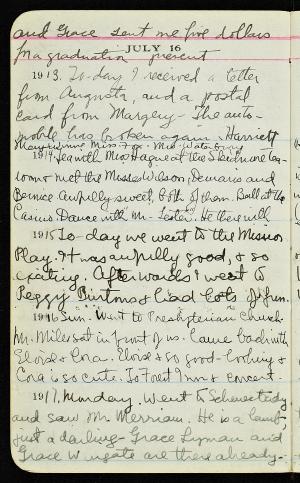 and Grace sent me five dollars
for a graduation present
JULY 16
1913. To-day I received a letter
from Augusta, and a postal
card from Margery - The auto-
mobile has broken again. Harriett
1914. Tea with Miss Hague at the Skidmore
met the Misses Wilson, Demaris and
Bernice Awfully sweet, both of them. Ball at the
Casino Dance with Mr. Lester. He
1915 To-day we went to the Mission
Play. It was awfully good, & so
exciting. Afterwards I went to
Peggy Burton's & had lots of fun.
1916 Sun. Went to Presbyterian Church.
Mr. Miller sat in front of us. Came back with
Eloise & Cora. Eloise is so good-looking &
Cora is so cute. To Forest Inn & concert.
1917. Monday. Went to Schenectady
and saw Mr. Merriam. He is a lamb,
just a darling - Grace Lyman and
Grace Wingate are there already -